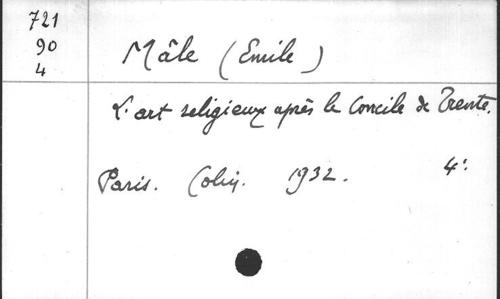 721
90
4
Mâle (Emile)
L'art religieux après le Concile de Trente.
Paris. Colin. 1932. 4°.